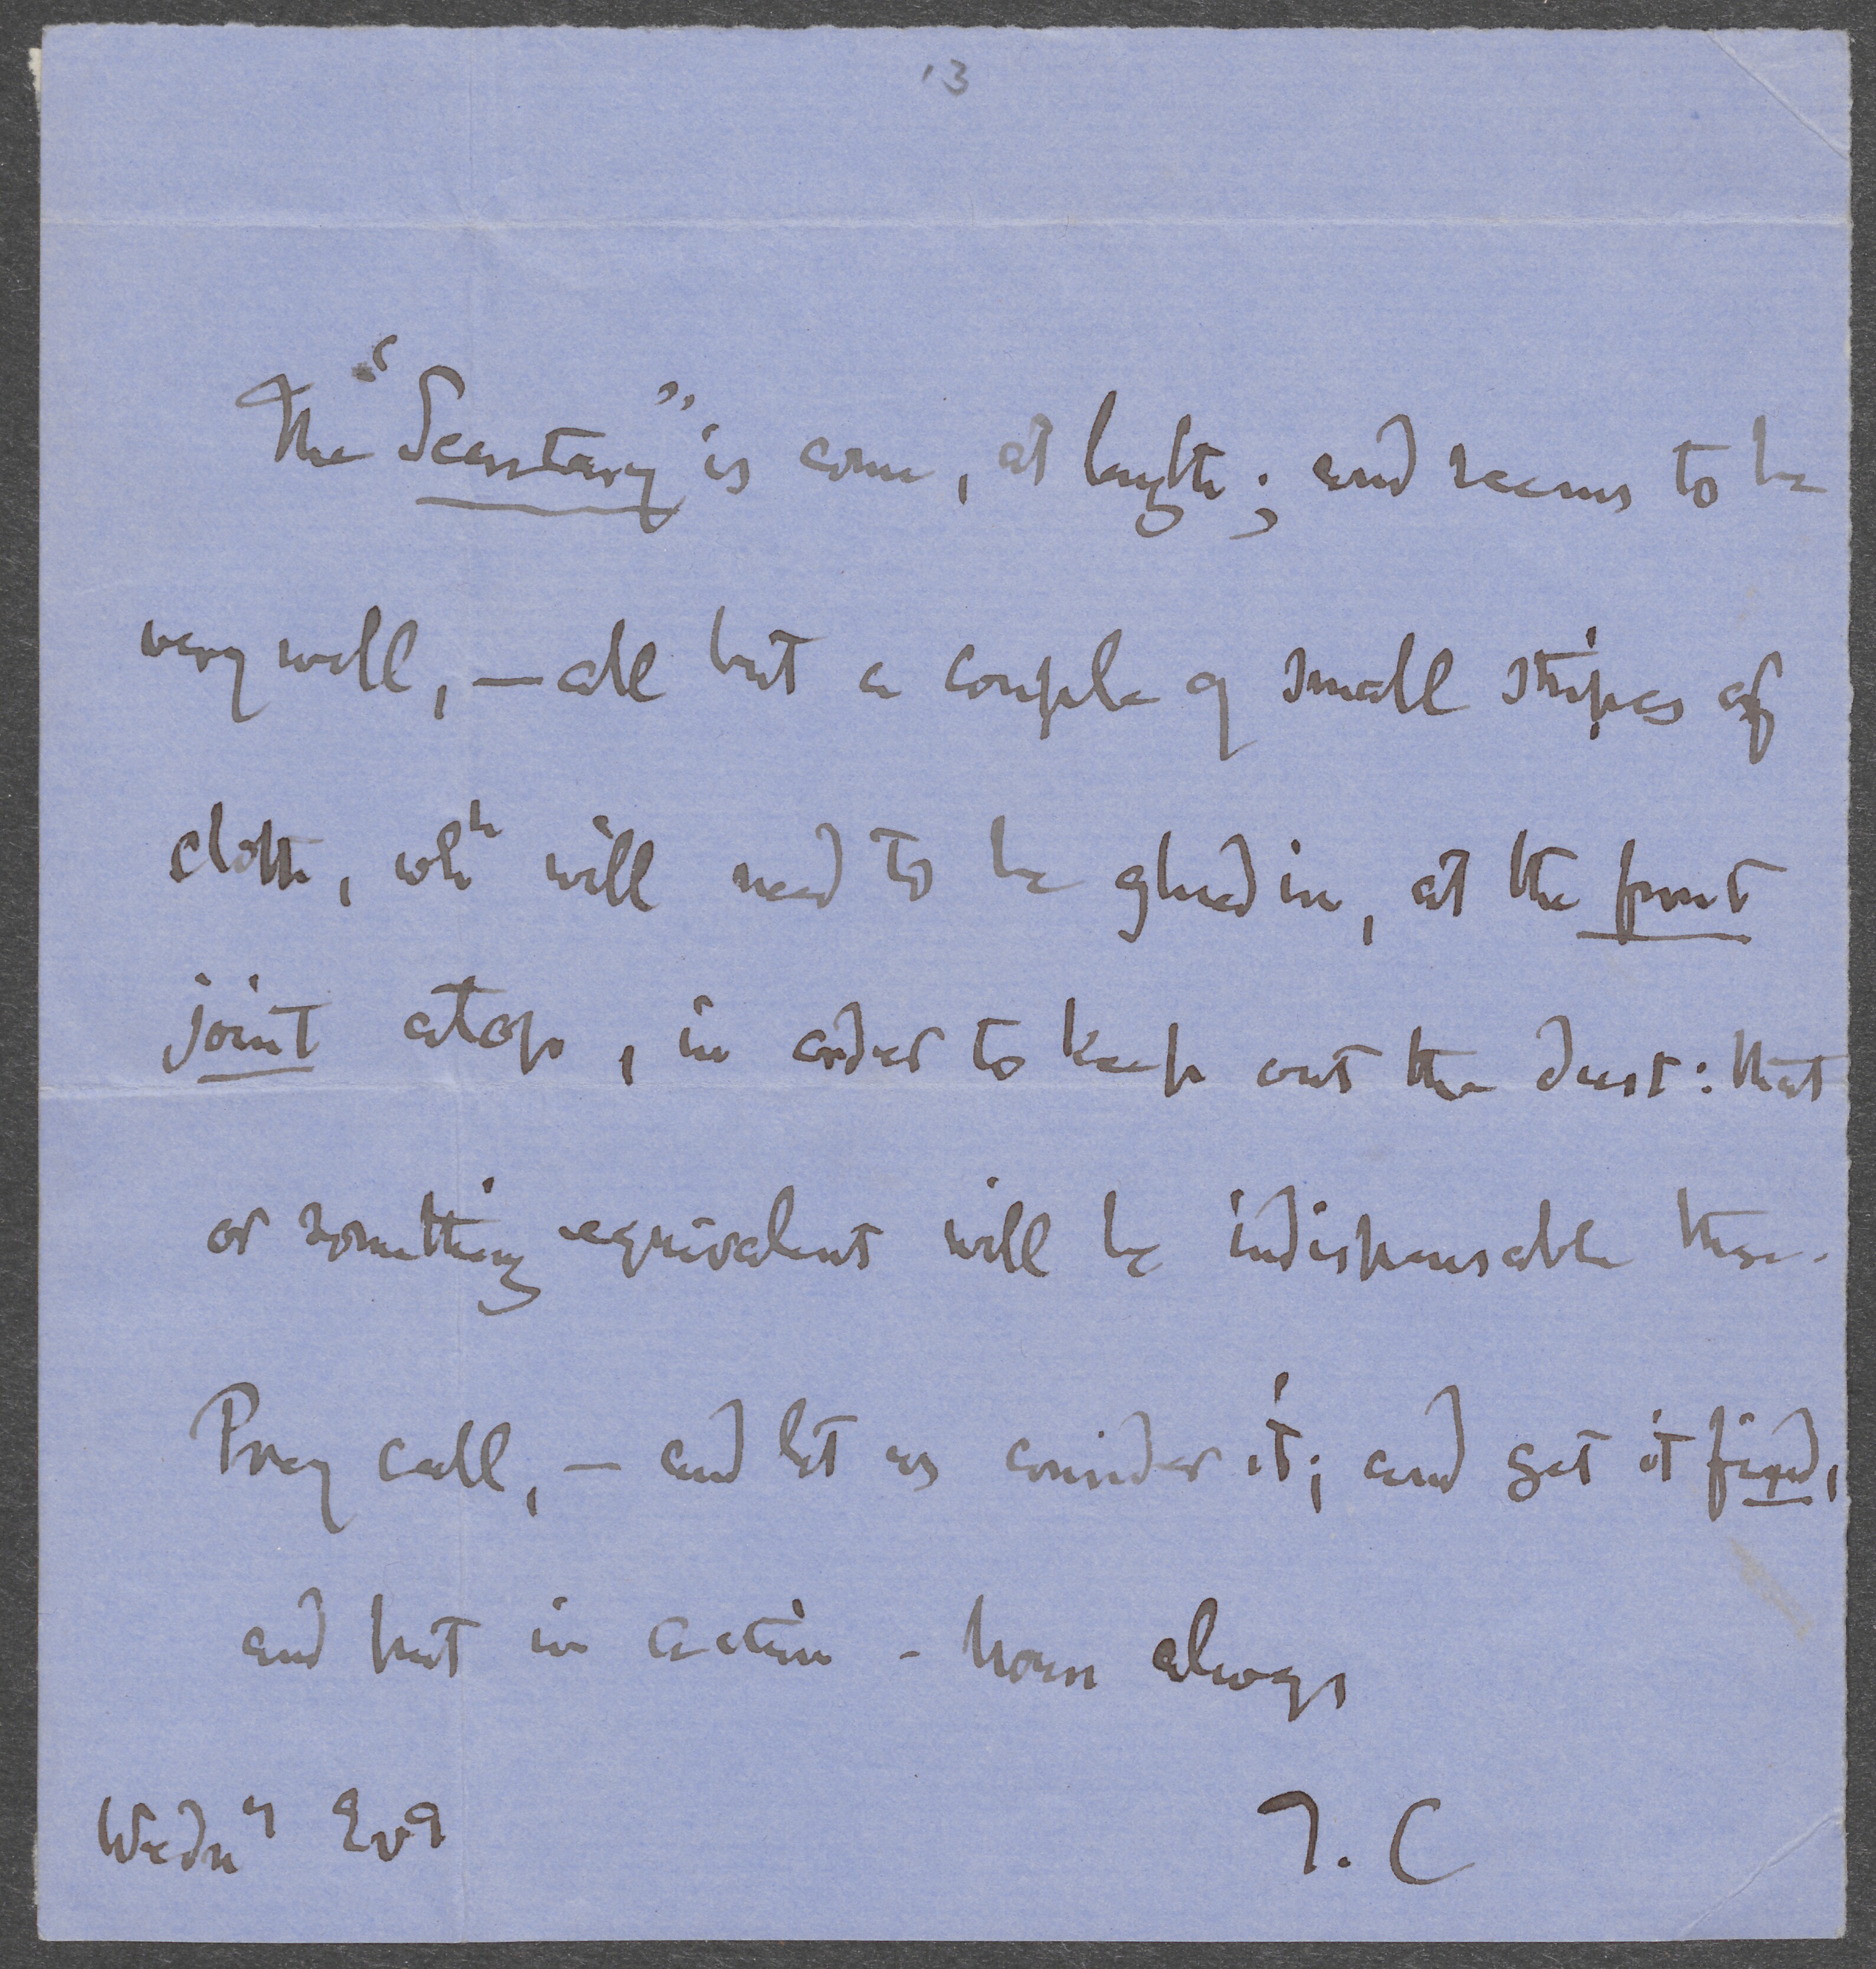 13
The "Secretary" is come, at length; and seems to be
very well, — all but a couple of small stripes of
cloth, whh will need to be glued in, at the front
joint atop, in order to keep out the dust: that
or something equivalent will be indispensable there.
Pray call, — and let us consider it; and get it fixed,
and put in action - Yours always
T. C
Wedny Evg